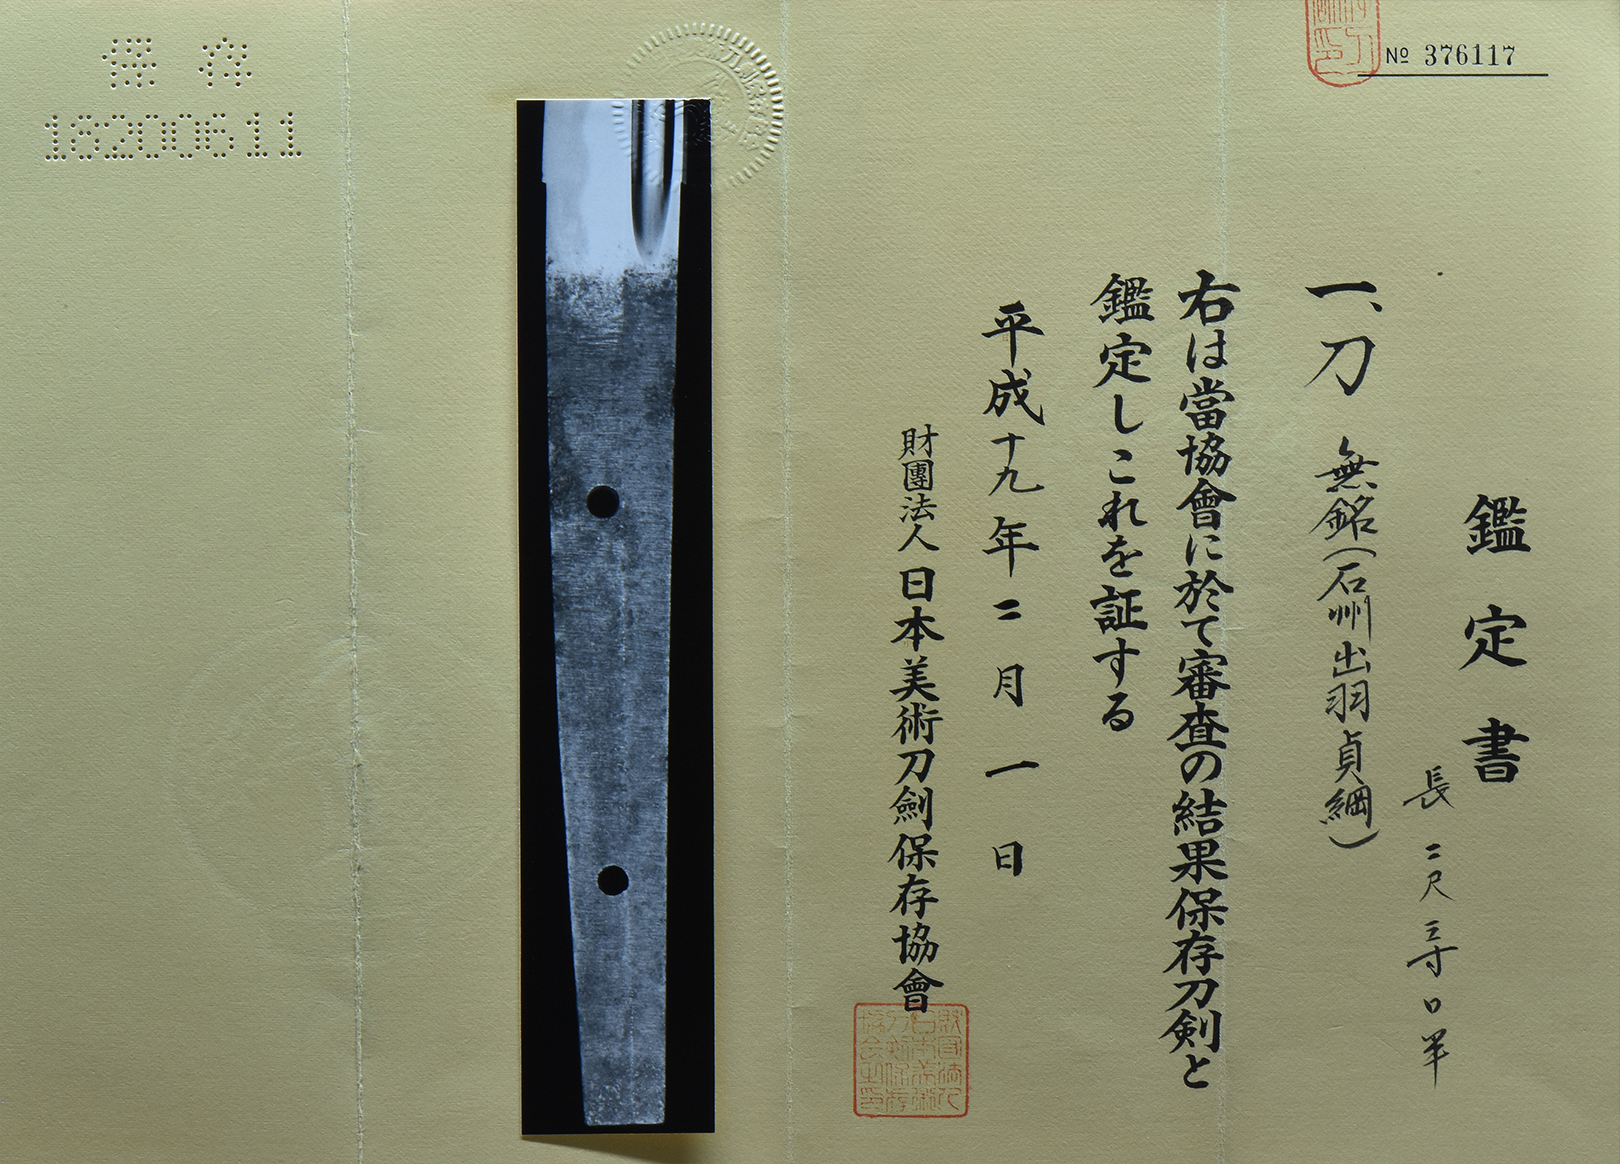 No 376117
鑑定書
長 二尺三寸口半
一、刀 無銘(石州出羽貞綱)
右は當協會に於て審査の結果保存刀剣と
鑑定しこれを証する
平成十九年二月一日
財團法人 日本美術刀劍保存協會
保存
18200611